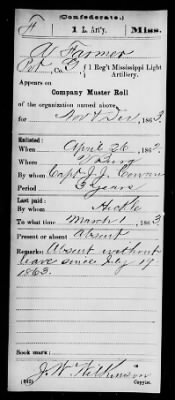 (Confederate.)
F 1 L. Art'y. Miss.
A Farmer
Pvt, Co. G, 1 Reg't Mississippi Light
Artillery.
Appears on
Company Muster Roll
of the organization named above,
for Nov & Dec, 1863.
Enlisted:
When April 26, 1862.
Where V Burg
By whom Capt J. J. Cowan
Period 3 years
Last paid:
By whom
To what time March 1, 1863.
Present or absent Absent
Remarks: Absent without
leave since July 19
1863.
Book mark:
J. W. Wilkinson
(642) Copyist.